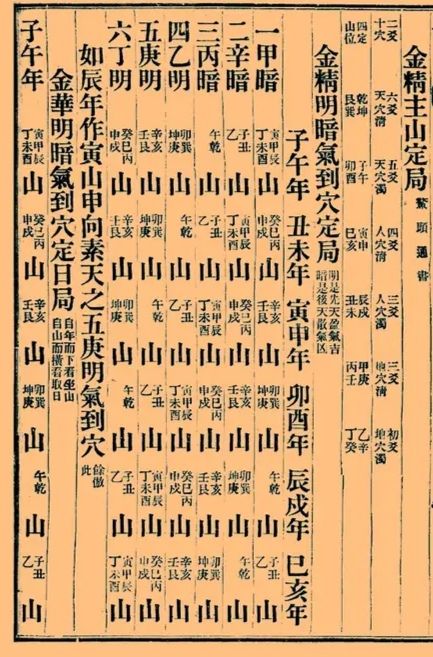 金精主山定局 鰲頭通書
二爻十穴 六爻天穴清 五爻天穴濁 四爻人穴清 三爻人穴濁 二爻地穴清 初爻地穴濁
四定山位 乾坤艮巽 子午卯酉 寅申巳亥 辰戌丑未 甲庚丙壬 乙辛丁癸
金精明暗氣到穴定局 明是先天盈氣吉 暗是後天散氣凶
子午年 丑未年 寅申年 卯酉年 辰戌年 巳亥年
一甲暗 寅甲辰丁未酉山 癸巳丙申戌山 辛亥壬艮山 卯巽坤庚山 午乾山 子丑乙山
二辛暗 子丑乙山 寅甲辰丁未酉山 癸巳丙申戌山 辛亥壬艮山 卯巽坤庚山 午乾山
三丙暗 午乾山 子丑乙山 寅甲辰丁未酉山 癸巳丙申戌山 辛亥壬艮山 卯巽坤庚山
四乙明 卯巽坤庚山 午乾山 子丑乙山 寅甲辰丁未酉山 癸巳丙申戌山 辛亥壬艮山
五庚明 辛亥壬艮山 卯巽坤庚山 午乾山 子丑乙山 寅甲辰丁未酉山 癸巳丙申戌山
六丁明 癸巳丙申戌山 辛亥壬艮山 卯巽坤庚山 午乾山 子丑乙山 寅甲辰丁未酉山
如辰年作寅山申向素天之五庚明氣到穴 餘倣此
金華明暗氣到穴定日局 自年而下看坐山 自山而橫看取日
子午年 寅甲辰丁未酉山 癸巳丙申戌山 辛亥壬艮山 卯巽坤庚山 午乾山 子丑乙山